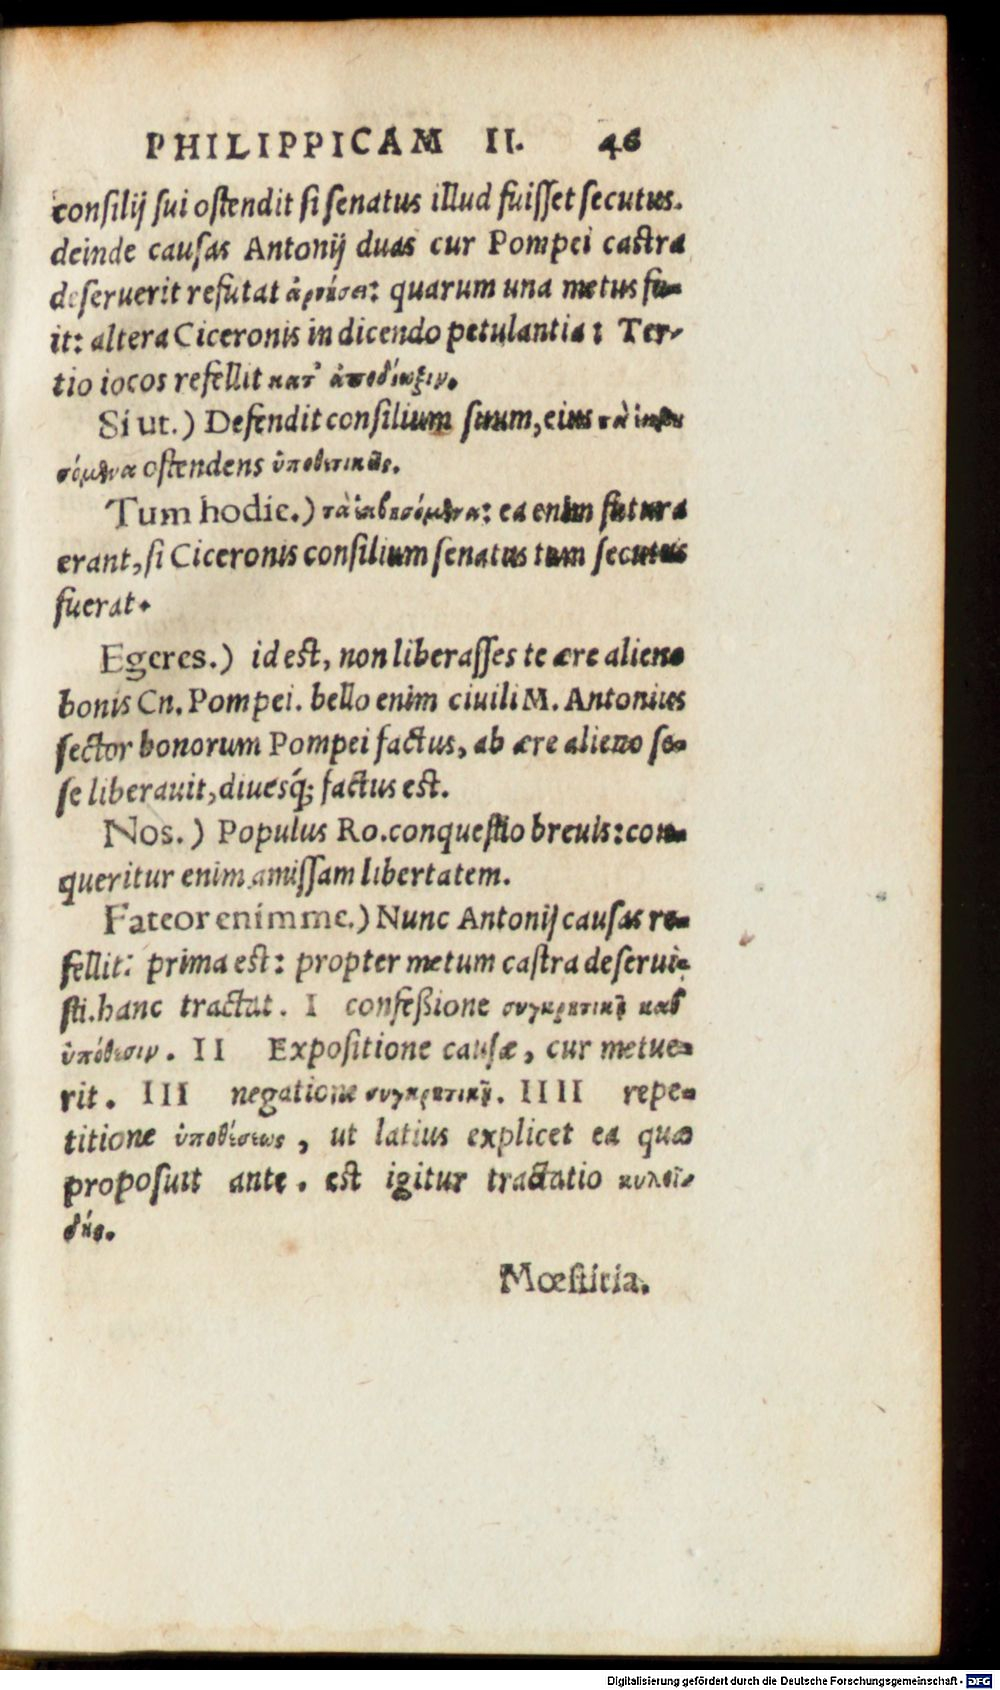 PHILIPPICAM II. 46
consilij sui ostendit si senatus illud fuisset secutus.
deinde causas Antonij duas cur Pompei castra
deseruerit refutat ἀρνήσει: quarum una metus fu-
it: altera Ciceronis in dicendo petulantia: Ter-
tio iocos refellit κατ' ἀποδίωξιν.
Si ut.) Defendit consilium suum, eius τὰ ἐκβη
σόμενα ostendens ὑποθετικῶς.
Tum hodie.) τὰ ἐκβησόμενα: ea enim futura
erant, si Ciceronis consilium senatus tum secutus
fuerat.
Egeres.) id est, non liberasses te ære alieno
bonis Cn. Pompei. bello enim ciuili M. Antonius
sector bonorum Pompei factus, ab ære alieno se-
se liberauit, diuesq́; factus est.
Nos.) Populus Ro. conquestio breuis: con-
queritur enim amissam libertatem.
Fateor enim me.) Nunc Antonij causas re-
fellit: prima est: propter metum castra deserui-
sti. hanc tractat. I confeßione συγκριτικῇ καθ'
ὑπόθεσιν. II Expositione causæ, cur metue-
rit. III negatione συγκριτικῇ. IIII repe-
titione ὑποθέσεως, ut latius explicet ea quæ
proposuit ante. est igitur tractatio κυκλοει-
δής.
Mœstitia.
Digitalisierung gefördert durch die Deutsche Forschungsgemeinschaft - DFG